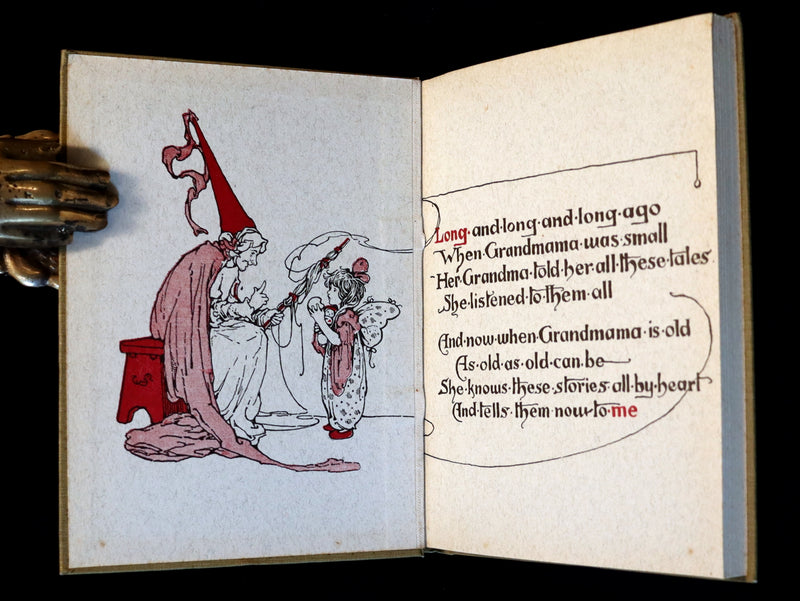 Long·and·long·and·long·ago
When·Grandmama·was·small
Her·Grandma·told·her·all·these·tales
She·listened·to·them·all
And·now·when·Grandmama·is·old
As·old·as·old·can·be
She·knows·these·stories·all·by·heart
And·tells·them·now·to·me